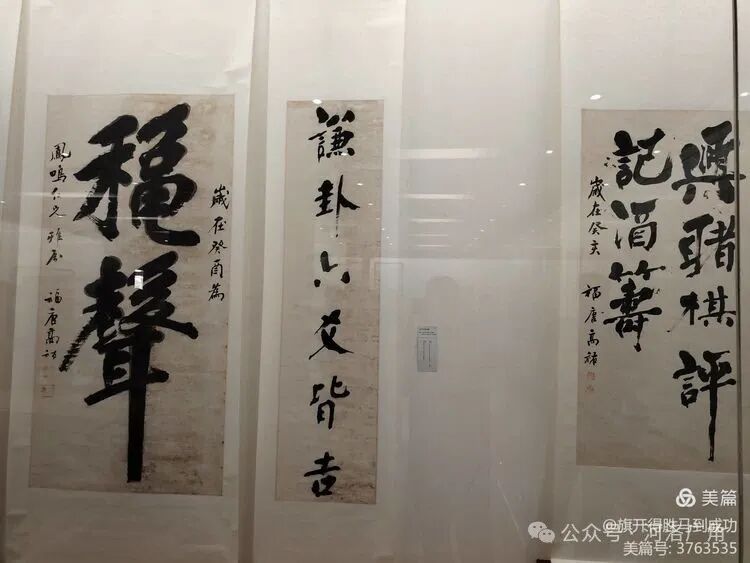 歲在癸酉
穐聲
鳳鳴仁兄雅屬
福唐高
謙卦六爻皆吉
棋評
記酒籌
歲在癸亥
福唐高禎
美篇
@旗开得胜马到成功
公众号·河洛广角
美篇号: 3763535